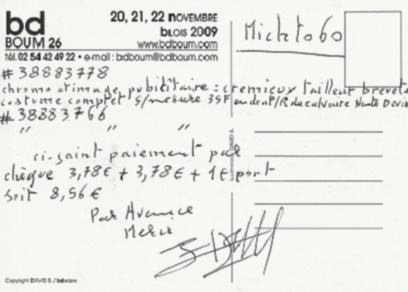 bd
BOUM 26
20, 21, 22 NOVEMBRE
BLOIS 2009
www.bdboum.com
tél. 02 54 42 49 22 • e-mail : bdboum@bdboum.com
Micktobo
# 38883778
chromo et image pubicitaire : cremieux tailleur breveté
costume complet s/mesure 35F
# 38883766
" " "
ci-joint paiement par
chèque 3,78€ + 3,78€ + 1€ port
soit 8,56€
Par Avance
Merci
Copyright DAVID B. / bdboum